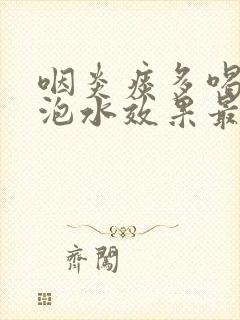 咽炎痰多喝
泡水效果最
齊闖